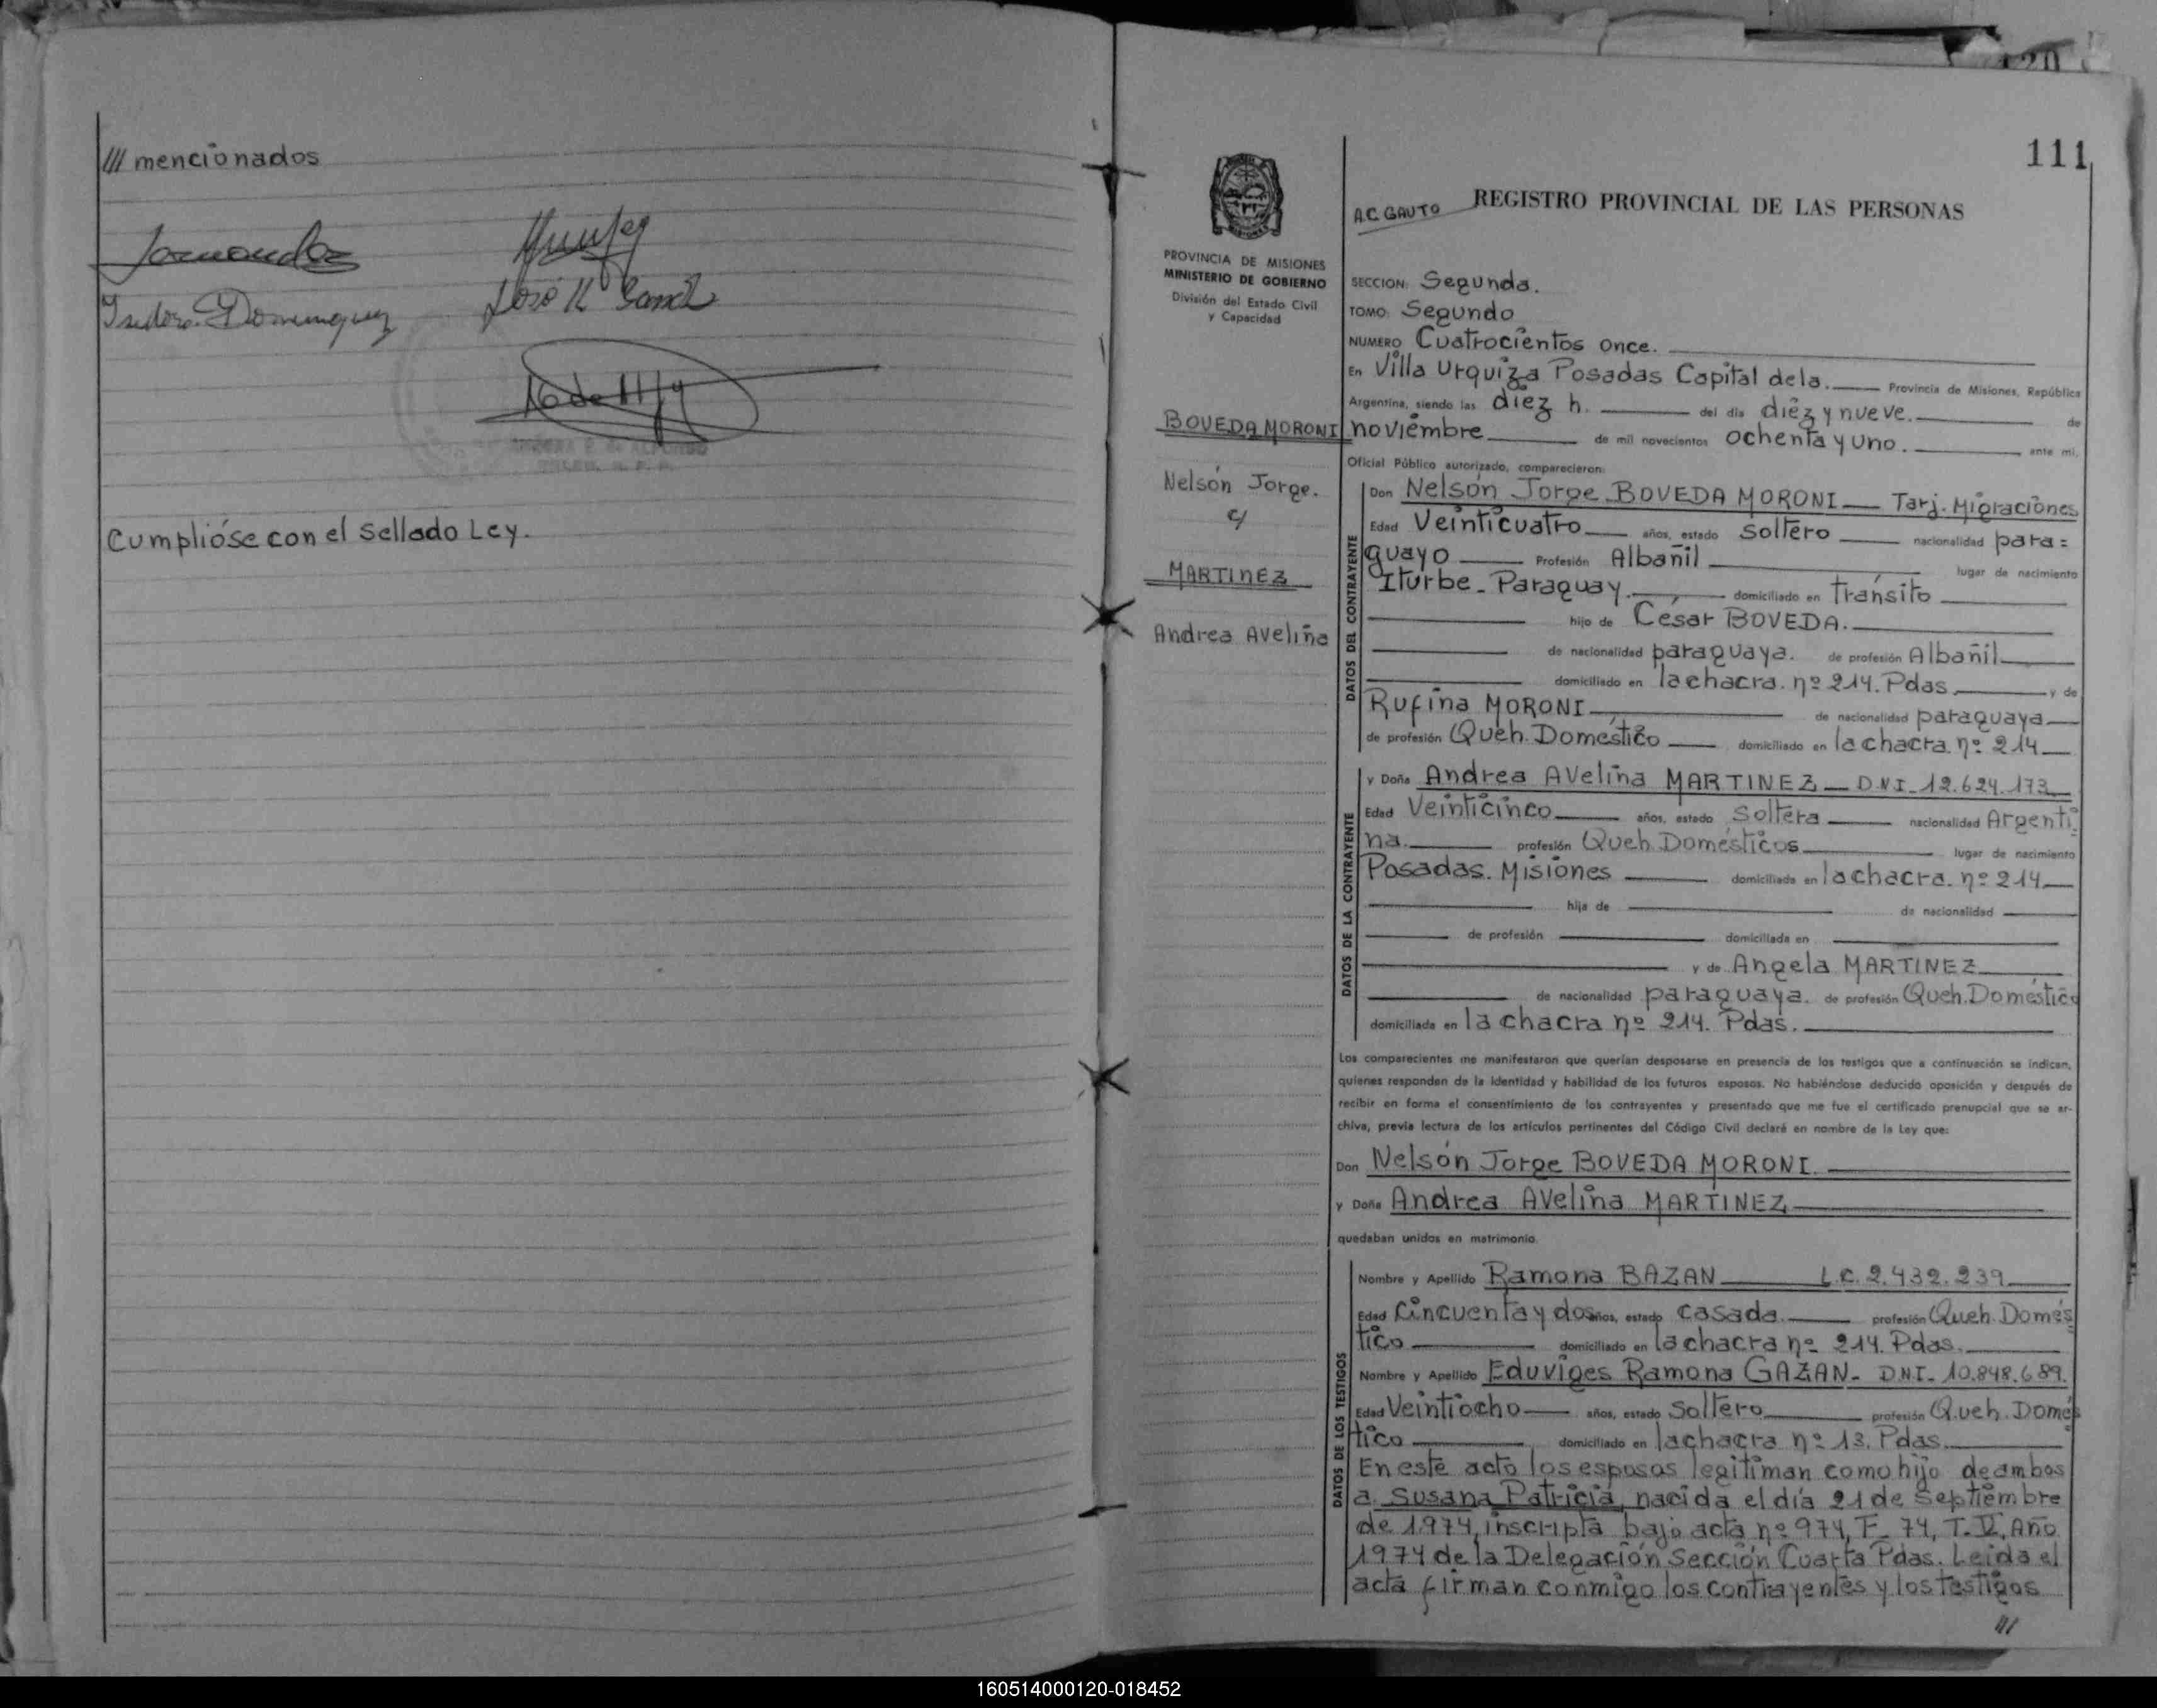 /// mencionados
Isidoro Dominguez
Cumplióse con el sellado Ley.
120
111
A.C. GAUTO
REGISTRO PROVINCIAL DE LAS PERSONAS
PROVINCIA DE MISIONES
MINISTERIO DE GOBIERNO
División del Estado Civil
y Capacidad
BOVEDA MORONI
Nelsón Jorge.
c/
MARTINEZ
Andrea Avelina
SECCION: Segunda.
TOMO: Segundo
NUMERO Cuatrocientos once.
En Villa Urquiza Posadas Capital dela. Provincia de Misiones, República
Argentina, siendo las diez h. del día diez y nueve. de
noviembre de mil novecientos ochenta y uno. ante mi,
Oficial Público autorizado, comparecieron:
DATOS DEL CONTRAYENTE
Don Nelsón Jorge BOVEDA MORONI Tarj. Migraciones
Edad Veinticuatro años, estado soltero nacionalidad para=
guayo Profesión Albañil lugar de nacimiento
Iturbe - Paraguay. domiciliado en tránsito
hijo de César BOVEDA.
de nacionalidad paraguaya. de profesión Albañil
domiciliado en la chacra. nº 214. Pdas. y de
Rufina MORONI de nacionalidad paraguaya
de profesión Queh. Doméstico domiciliado en la chacra. nº 214
DATOS DE LA CONTRAYENTE
y Doña Andrea Avelina MARTINEZ D.N.I. 12.624.173
Edad Veinticinco años, estado soltera nacionalidad Argenti
na. profesión Queh. Domésticos lugar de nacimiento
Posadas. Misiones domiciliada en la chacra. nº 214
hija de de nacionalidad
de profesión domiciliada en
y de Angela MARTINEZ
de nacionalidad paraguaya. de profesión Queh. Doméstico
domiciliada en la chacra nº 214. Pdas.
Los comparecientes me manifestaron que querían desposarse en presencia de los testigos que a continuación se indican,
quienes responden de la identidad y habilidad de los futuros esposos. No habiéndose deducido oposición y después de
recibir en forma el consentimiento de los contrayentes y presentado que me fue el certificado prenupcial que se ar-
chiva, previa lectura de los artículos pertinentes del Código Civil declaré en nombre de la Ley que:
Don Nelsón Jorge BOVEDA MORONI.
y Doña Andrea Avelina MARTINEZ
quedaban unidos en matrimonio.
DATOS DE LOS TESTIGOS
Nombre y Apellido Ramona BAZAN L.C. 2.432.239
Edad Cincuenta y dos años, estado casada. profesión Queh. Domés
tico domiciliado en la chacra nº 214. Pdas.
Nombre y Apellido Eduviges Ramona GAZAN - D.N.I. 10.848.689.
Edad Veintiocho años, estado soltero profesión Queh. Domés
tico domiciliado en la chacra nº 13. Pdas.
En este acto los esposos legitiman como hijo de ambos
a Susana Patricia, nacida el día 21 de Septiembre
de 1974, inscripta bajo acta nº 974, F. 74, T. V, Año
1974 de la Delegación Sección Cuarta Pdas. Leida el
acta firman conmigo los contrayentes y los testigos
///
160514000120-018452